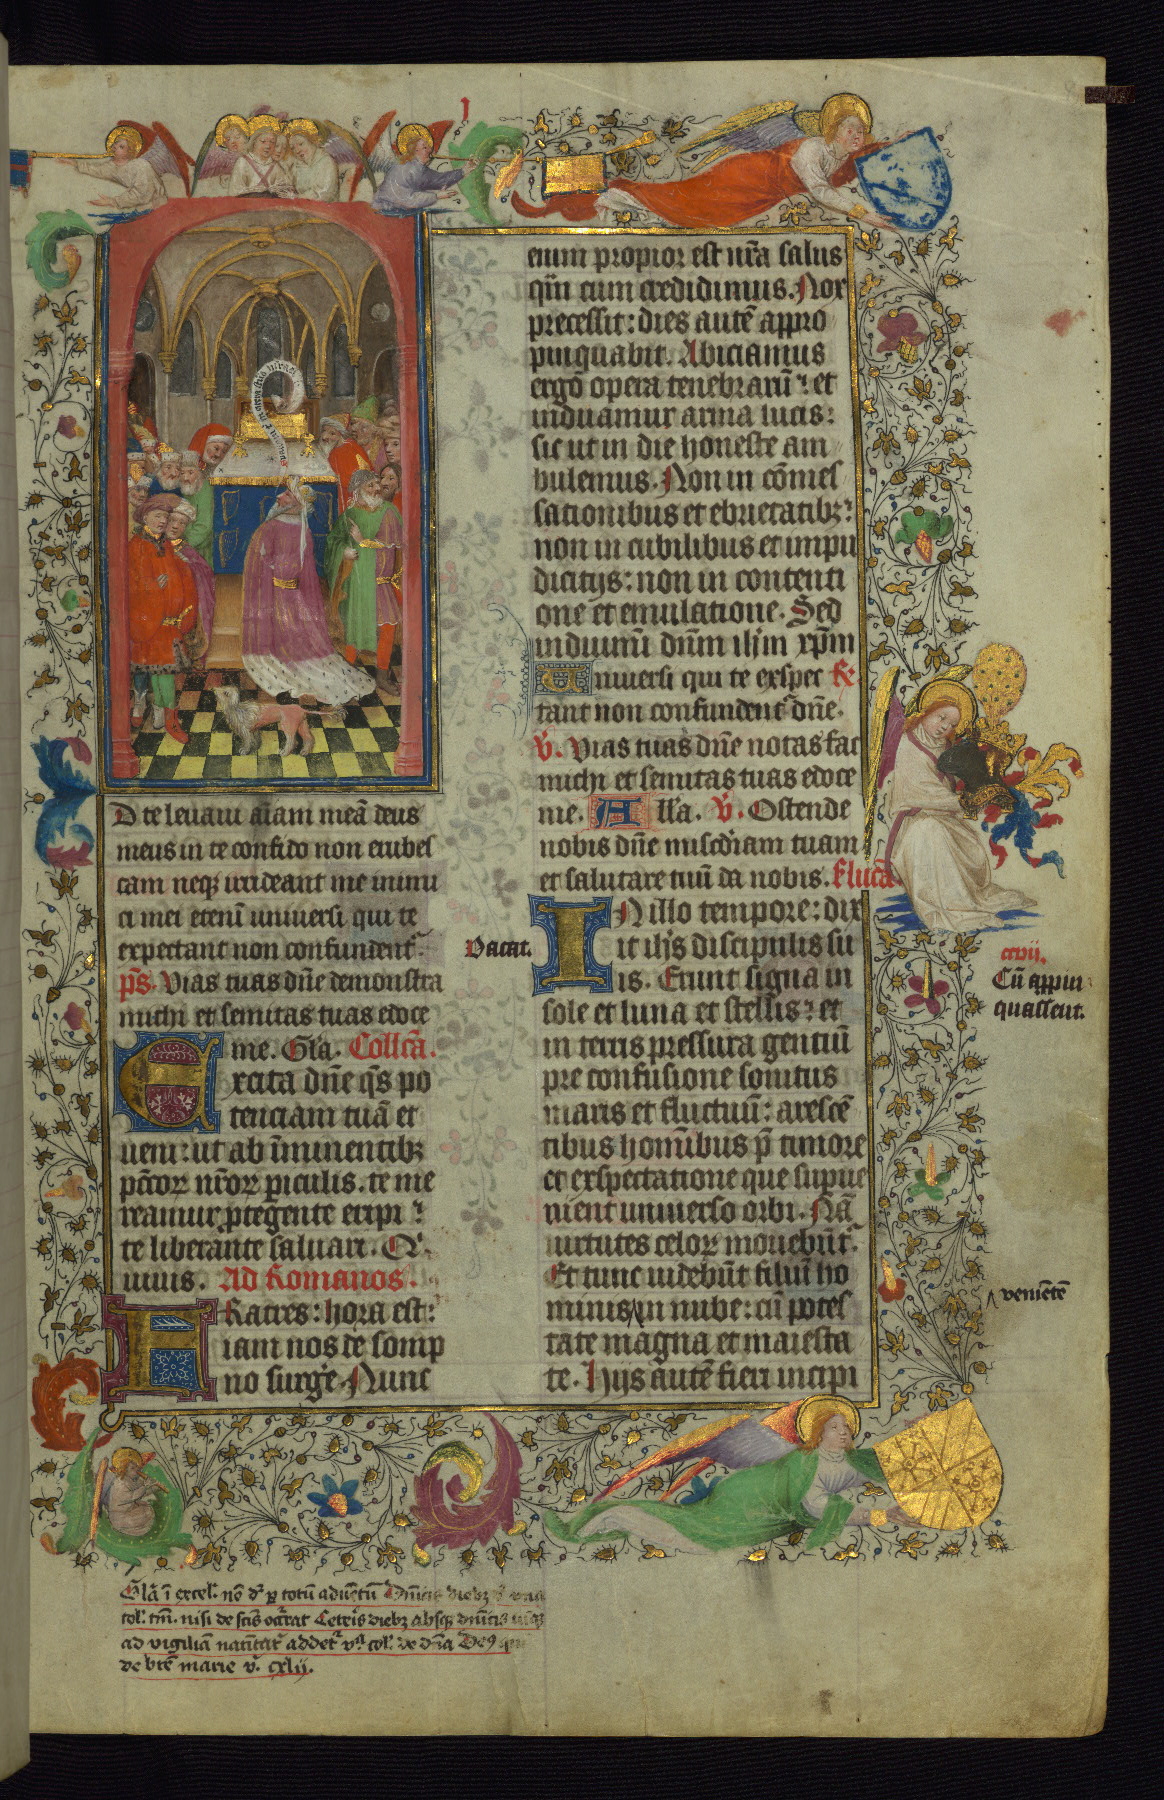 I
D te levavi a͞iam meā deus
meus in te confido non erubeſ
cam neq; irrideant me inimi
ci mei etenī universi qui te
expectant non confundent᷑.
p͞s. Vias tuas dn͞e demonstra
michi et semitas tuas edoce
me. Gl͞a. Coll͞cā.
Excita dn͞e q͞s po
tenciam tuā et
veni: ut ab īminentibꝫ
pc͞coꝝ nr͞oꝝ ꝑiculis. te me
reamur ꝓtegente eripi:
te liberante salvari. Q͞.
vivis. Ad Romanos.
FRatres: hora est:
iam nos de somp
no surge͛. Nunc
enim propior est nr͞a salus
qͣm cum credidimus. Nox
precessit: dies autē appro
pinquabit. Abiciamus
ergo opera tenebrarū: et
induamur arma lucis:
sic ut in die honeste am
bulemus. Non in cōmeſ
sationibus et ebrietatibꝫ:
non in cubilibus et impu
dicitijs: non in contenti
one et emulatione. Sed
induimī dn͞m ih͞m xp͞m
Universi qui te exspec R͞
tant non confundent᷑ dn͞e.
V͛. Vias tuas dn͞e notas fac
michi et semitas tuas edoce
me. All͞a. V͛. Ostende
nobis dn͞e misc͛diam tuam
et salutare tuū da nobis. S. lucā
Vacat.
IN illo tempore: dix
it ih͞s discipulis su
is. Erunt signa in
sole et luna et stellis: et
in terris pressura gentiū
pre confusione sonitus
maris et fluctuū: arescē
tibus hom͞ibus p͞ timore
et exspectatione que supve
nient universo orbi. Nā
virtutes celoꝝ movebūt᷑.
Et tunc videbūt filiū ho
minis ʌ in nube: cū poteſ
tate magna et maiesta
te. Hijs autē fieri incipi
cxvij.
Cū appin
quassent.
ʌ venīetē
Gl͞a ī excel. nō d͛ ꝑ totū adventū Dn͞icis diebꝫ
col. tm͞. nisi de sc͞is occ͛rat Cet͛is diebꝫ absqꝫ dn͞icis
ad vigiliā nativitat᷑ addet᷑ col. de dn͞a Deꝰ qui
de bt͞e marie v͛. cxlij.